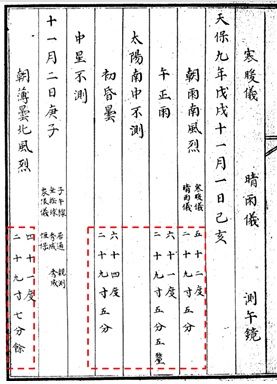 寒暖儀 晴雨儀 測午鏡
天保九年戊戌十一月一日己亥
朝雨南風烈 寒暖儀 五十二度
晴雨儀 二十九寸五分
午正雨 六十一度
二十九寸五分五釐
太陽南中不測
初昏曇 六十四度
二十九寸五分
中星不測
十一月二日庚子 子午線
朝薄曇北風烈 四十一度
二十九寸七分餘